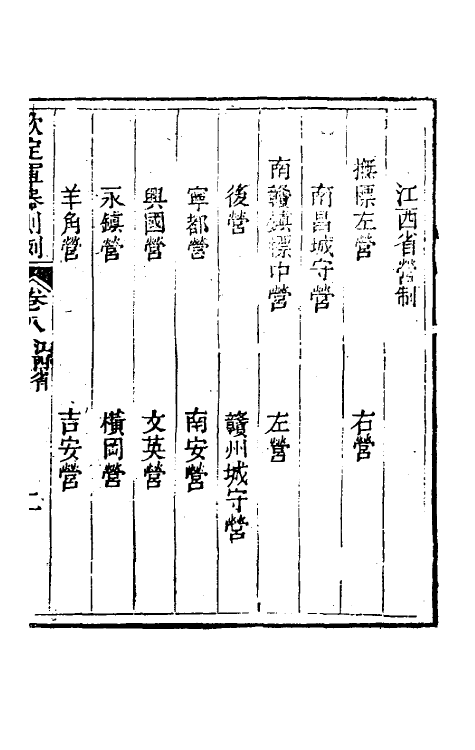 江西省營制
撫標左營　右營
南昌城守營
南贛鎮標中營　左營
後營　贛州城守營
寧都營　南安營
興國營　文英營
永鎮營　橫岡營
羊角營　吉安營
欽定軍器則例　卷八　江西省